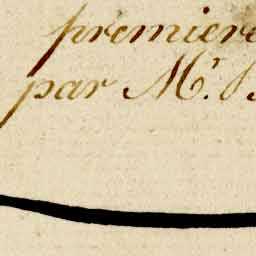 premiere
par Mr.